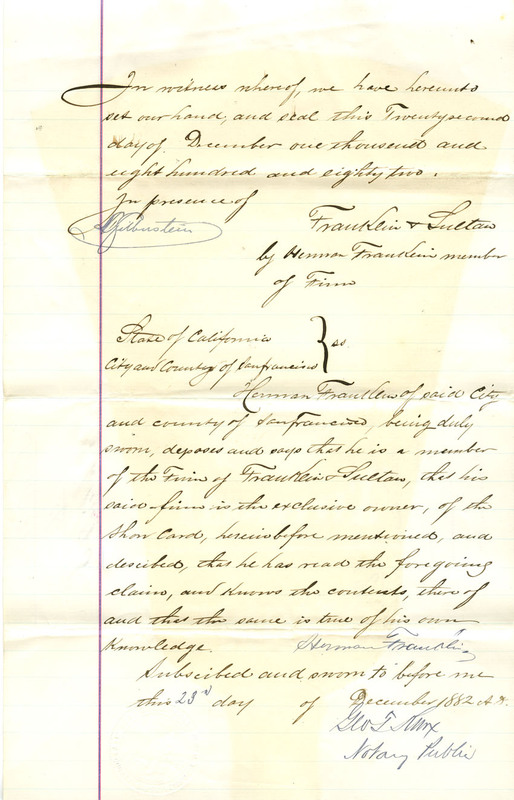 In witness whereof, we have hereunto
set our hand, and seal this Twenty second
day of December one thousand and
eight hundred and eighty two.
In presence of
Franklin & Sultan
by Herman Franklin member
of Firm
State of California
City and County of San francisco } ss
Herman Franklin of said City
and county of San francisco, being duly
sworn, deposes and says that he is a member
of the Firm of Franklin & Sultan, that his
said firm is the exclusive owner, of the
Show Card, herein before mentioned, and
descibed, that he has read the foregoing
claim, and knows the contents, there of
and that the same is true of his own
Knowledge.
Herman Franklin
Subscibed and sworn to before me
this 23rd day of December 1882
Geo T Knox
Notary Public